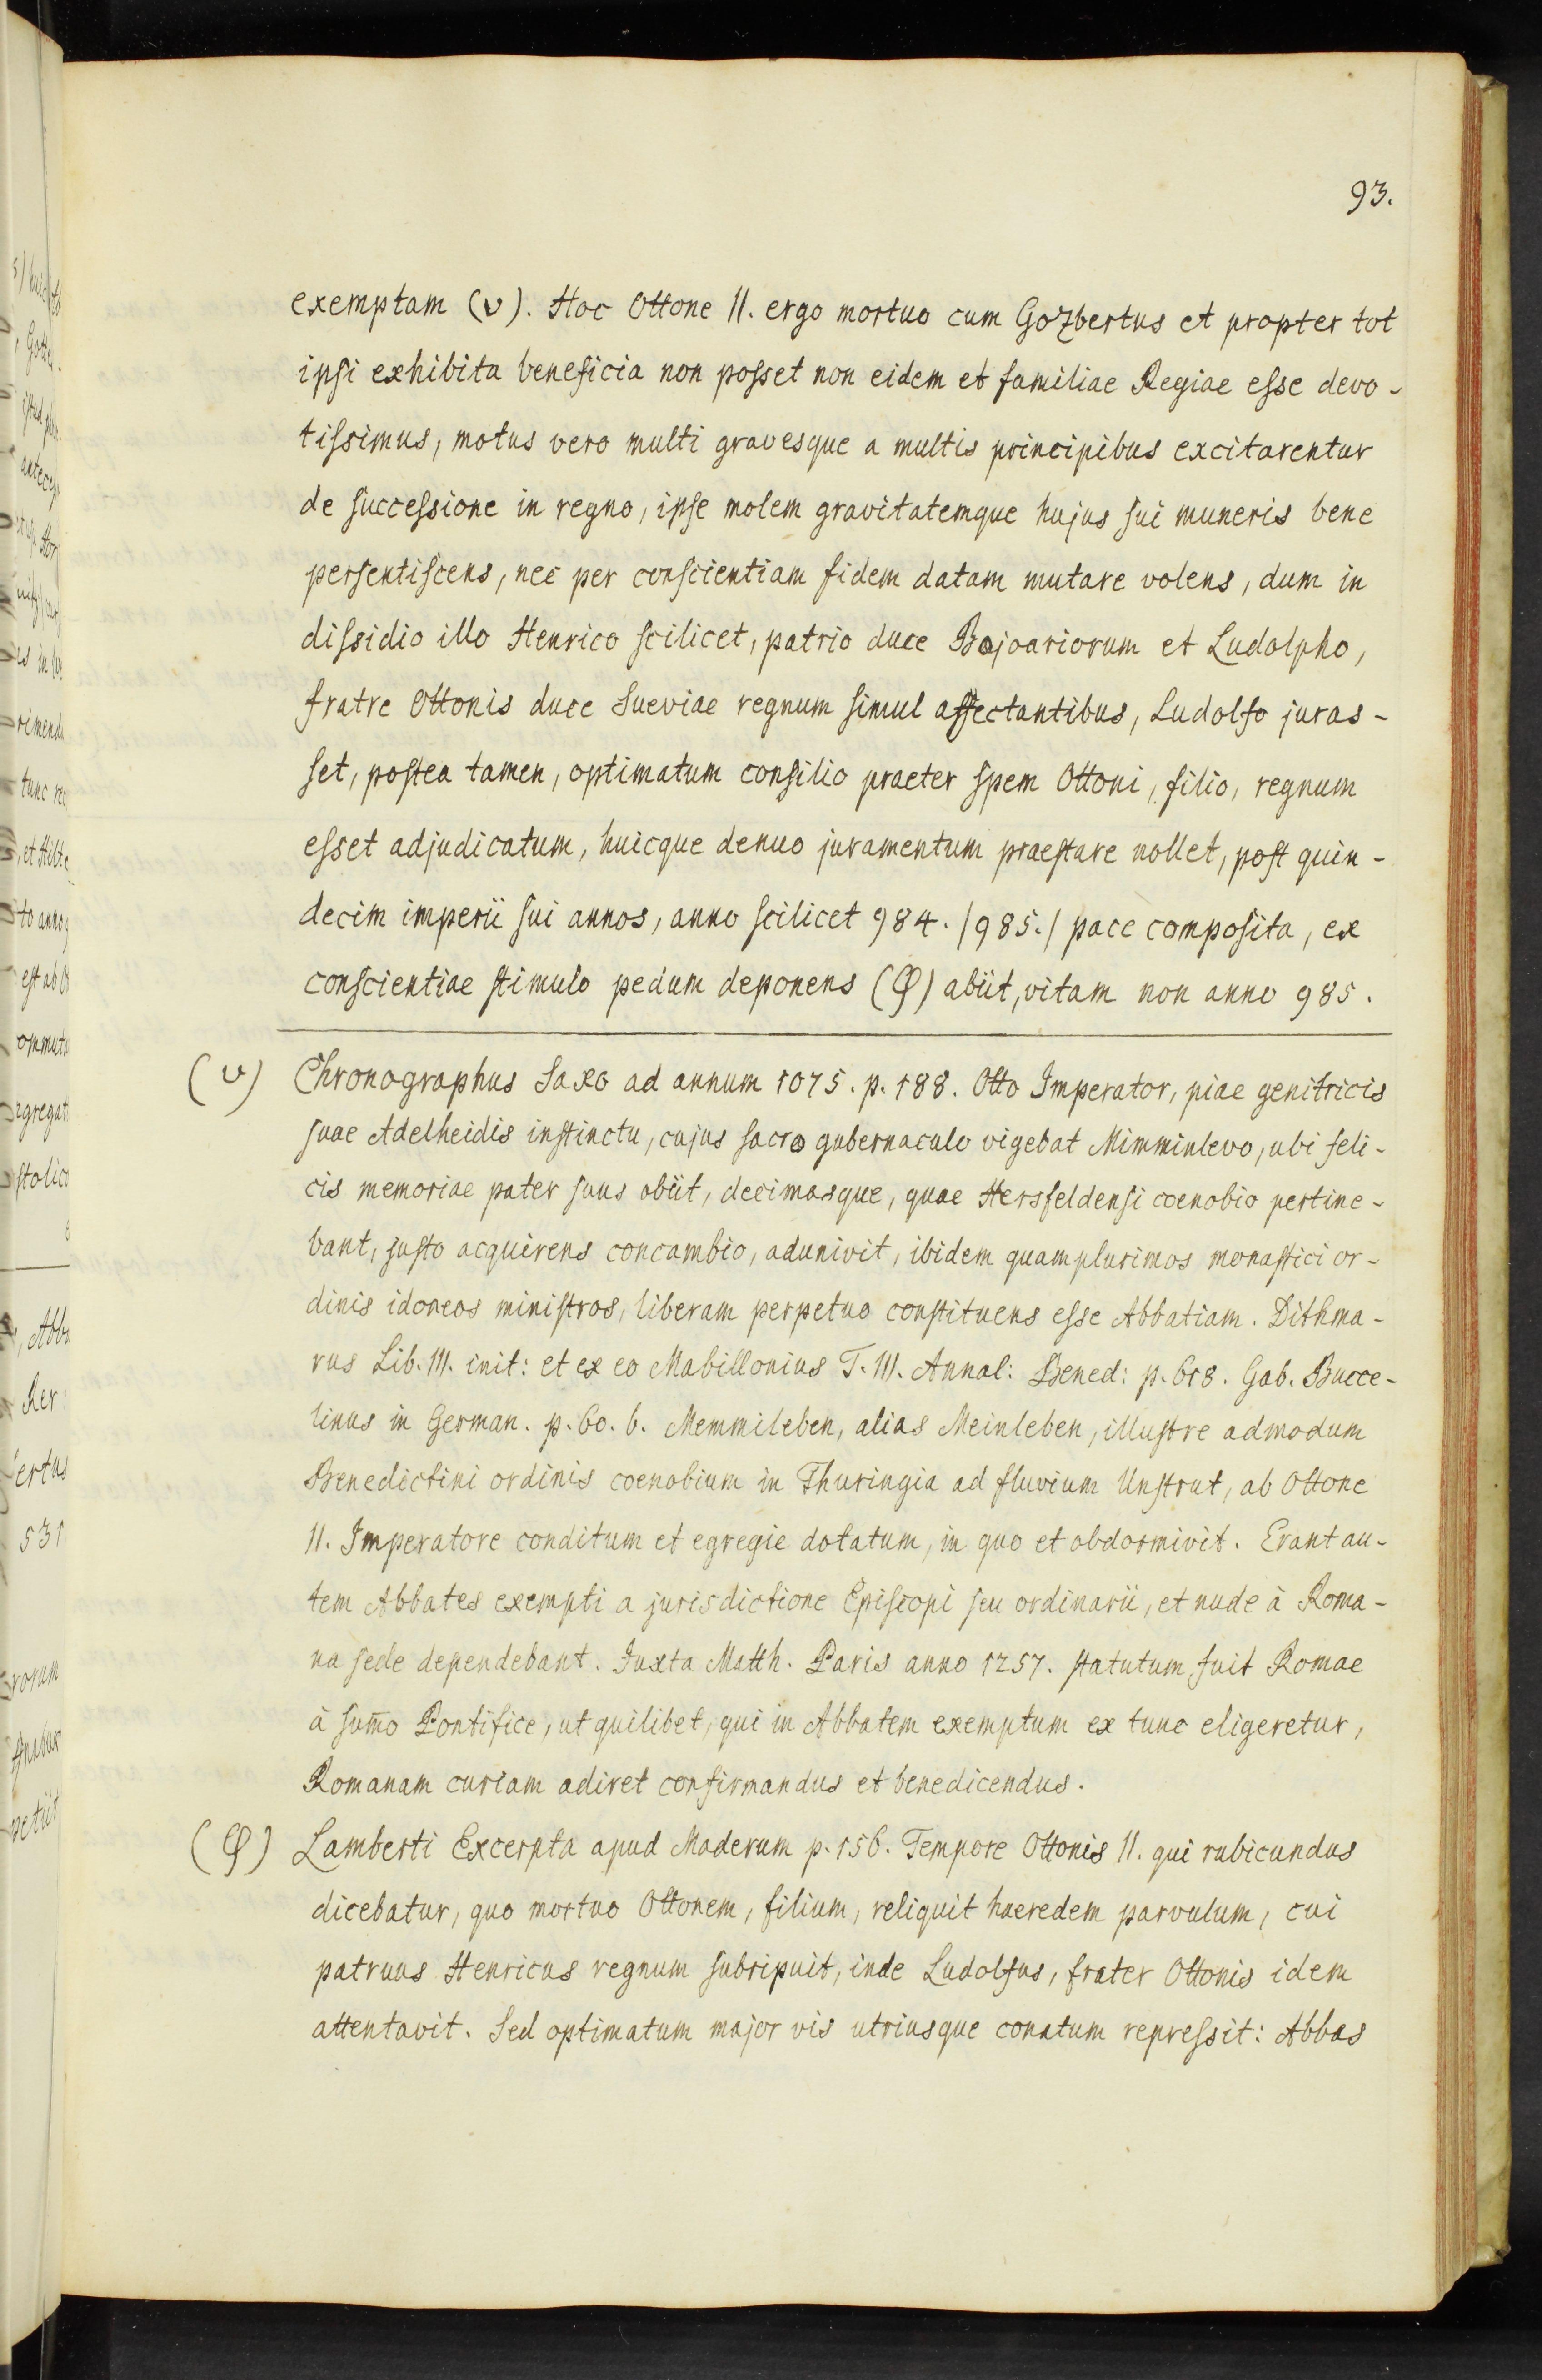 93.
exemptam (υ). Hoc Ottone II. ergo mortuo cum Gozbertus et propter tot
ipsi exhibita beneficia non posset non eidem et familiae Regiae esse devo-
tissimus, motus vero multi gravesque a multis principibus excitarentur
de successione in regno, ipse molem gravitatemque hujus sui muneris bene
persentiscens, nec per conscientiam fidem datam mutare volens, dum in
dissidio illo Henrico scilicet, patrio duce Bojoariorum et Ludolpho,
fratre Ottonis duce Sueviae regnum simul affectantibus, Ludolfo juras-
set, postea tamen, optimatum consilio praeter spem Ottoni, filio, regnum
esset adjudicatum, huicque denuo juramentum praestare nollet, post quin-
decim imperii sui annos, anno scilicet 984. /985./ pace composita, ex
conscientiae stimulo pedum deponens (φ) abiit, vitam non anno 985.
(υ) Chronographus Saxo ad annum 1075. p. 188. Otto Imperator, piae genitricis
suae Adelheidis instinctu, cujus sacro gubernaculo vigebat Mimminlevo, ubi feli-
cis memoriae pater suus obiit, decimasque, quae Hersfeldensi coenobio pertine-
bant, justo acquirens concambio, adunivit, ibidem quamplurimos monastici or-
dinis idoneos ministros, liberam perpetuo constituens esse Abbatiam. Dithma-
rus Lib. III. init: et ex eo Mabillonius T. III. Annal: Bened: p. 618. Gab. Bucce-
linus in German. p. 60. b. Memmileben, alias Meinleben, illustre admodum
Benedictini ordinis coenobium in Thuringia ad fluvium Unstrut, ab Ottone
II. Imperatore conditum et egregie dotatum, in quo et obdormivit. Erant au-
tem Abbates exempti a jurisdictione Episcopi seu ordinarii, et nude à Roma-
na sede dependebant. Juxta Matth. Paris anno 1257. statutum fuit Romae
à sum̄o Pontifice, ut quilibet, qui in Abbatem exemptum ex tunc eligeretur,
Romanam curiam adiret confirmandus et benedicendus.
(φ) Lamberti Excerpta apud Maderum p. 156. Tempore Ottonis II. qui rubicundus
dicebatur, quo mortuo Ottonem, filium, reliquit haeredem parvulum, cui
patruus Henricus regnum subripuit, inde Ludolfus, frater Ottonis idem
attentavit. Sed optimatum major vis utriusque conatum repressit: Abbas